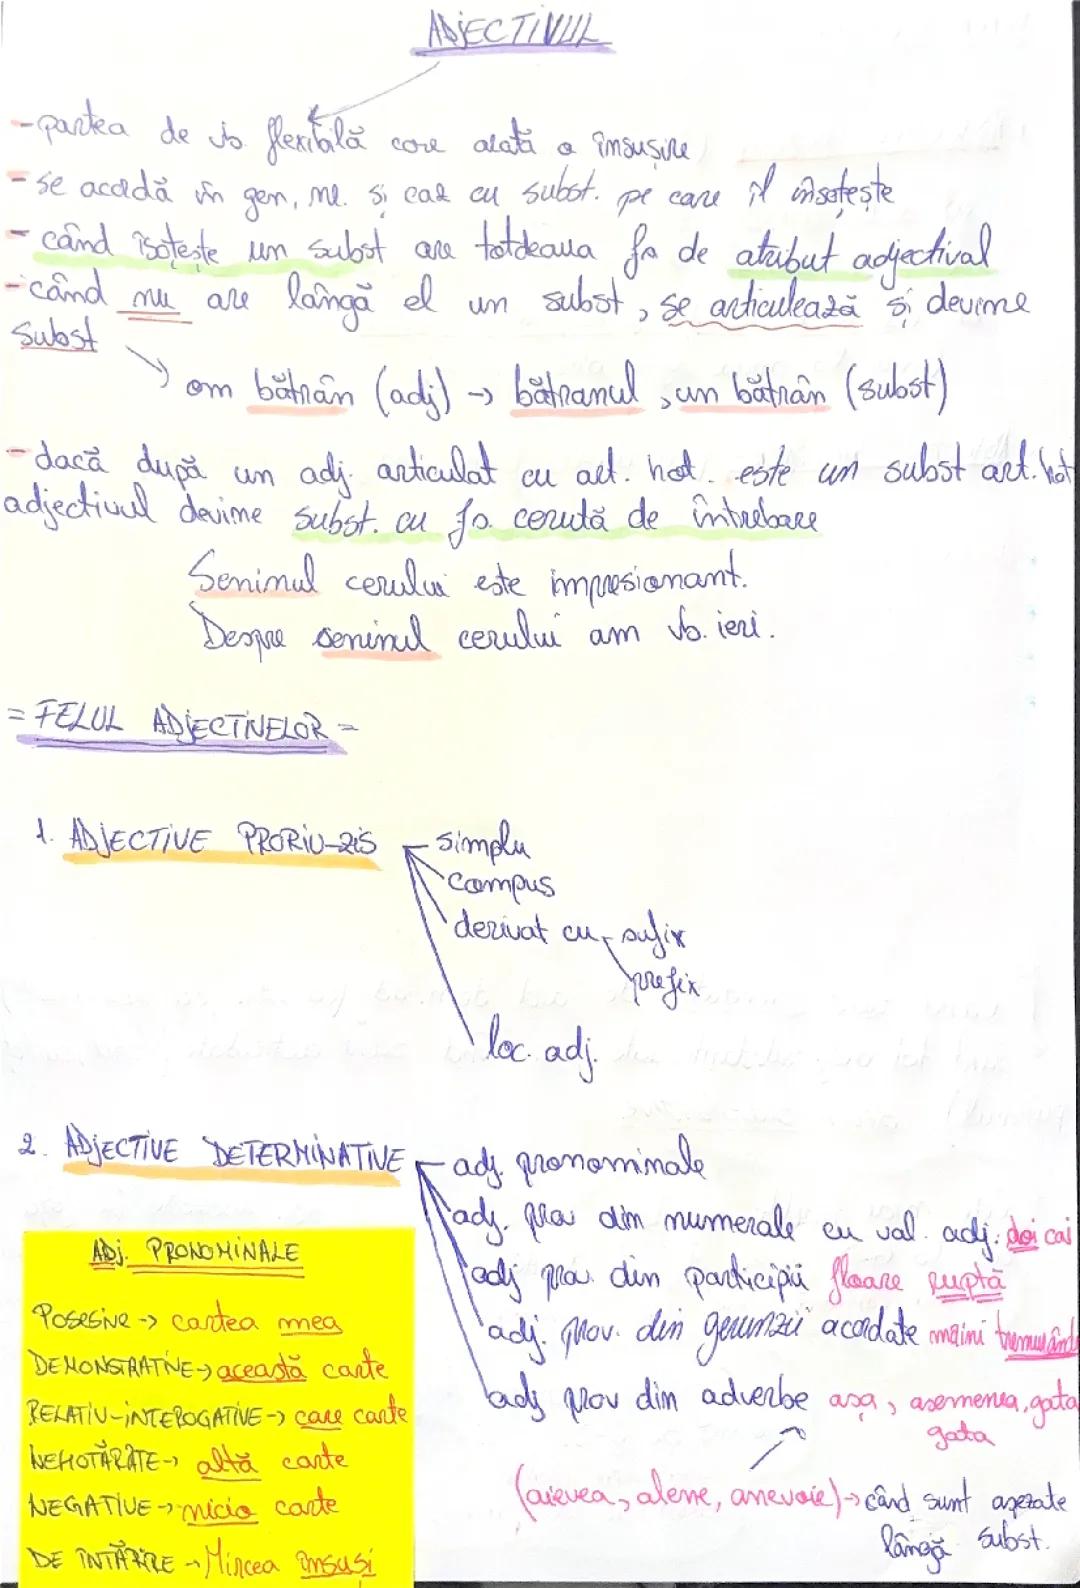 ADJECTIVUL
- partea de vb. flexibilă care arată o însușire
- se acordă în gen, nr. și caz cu subst. pe care îl însoțește
- când îsoțește un subst are totdeauna fc de atribut adjectival
- când nu are lângă el un subst, se articulează și devine
subst
om bătrân (adj) → bătranul, un bătrân (subst)
- dacă după un adj. articulat cu art. hot. este un subst art. hot
adjectivul devine subst. cu fc. cerută de întrebare
Seninul cerului este impresionant.
Despre seninul cerului am vb. ieri.
= FELUL ADJECTIVELOR =
1. ADJECTIVE PRORIU-ZIS
simplu
compus
derivat cu sufix
prefix
loc. adj.
2. ADJECTIVE DETERMINATIVE
adj. pronominale
adj. prov din numerale cu val. adj. doi cai
adj prov. din participii floare ruptă
adj. prov. din gerunzii acordate maini tremurânde
adj prov din adverbe așa, asemenea, gata
gata
(aievea, alene, anevoie) → când sunt așezate
lângă subst.
ADJ. PRONOMINALE
POSESIVE → cartea mea
DEMONSTRATIVE → această carte
RELATIV-INTEROGATIVE → care carte
NEHOTĂRÂTE → altă carte
NEGATIVE → nicio carte
DE INTĂRIRE → Mircea însuși